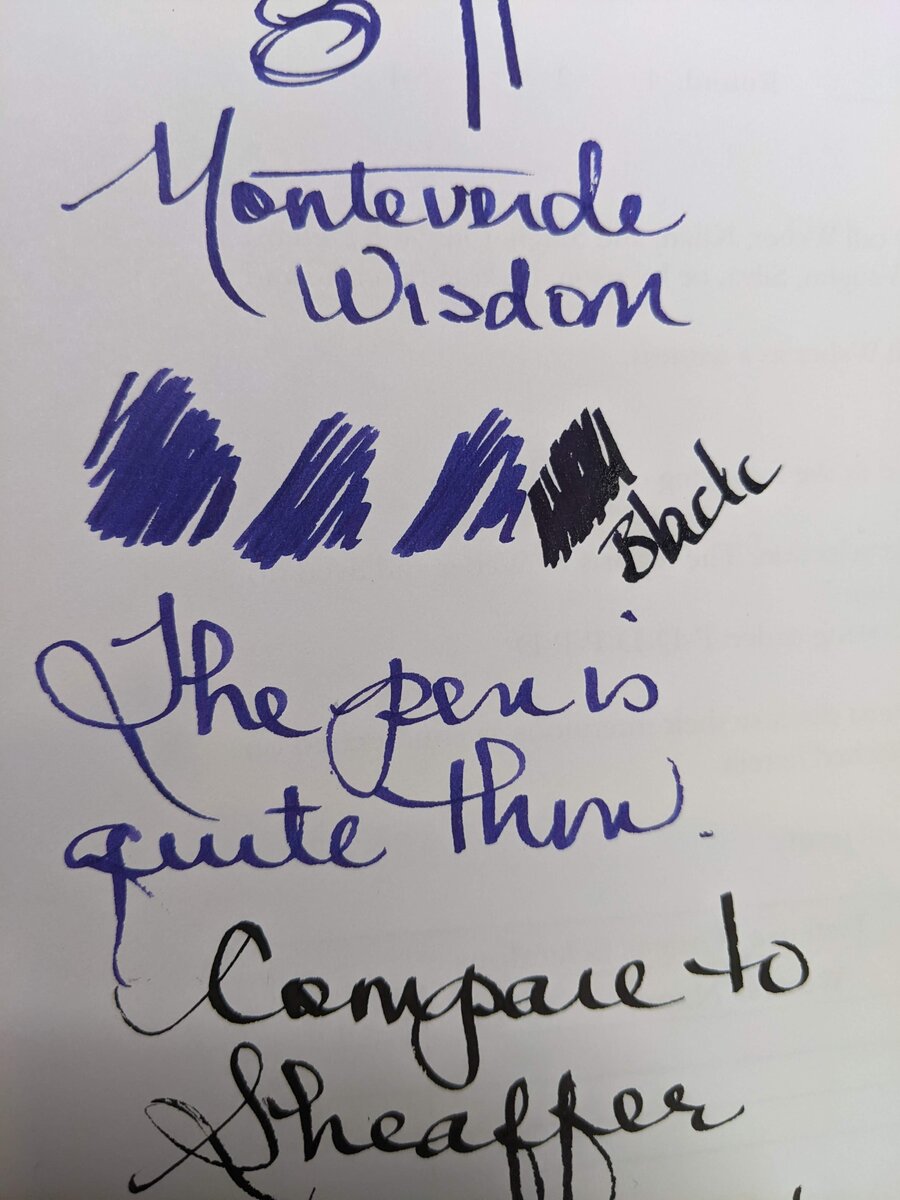 Monteverde
Wisdom
Black
The pen is
quite thin.
Compare to
Sheaffer